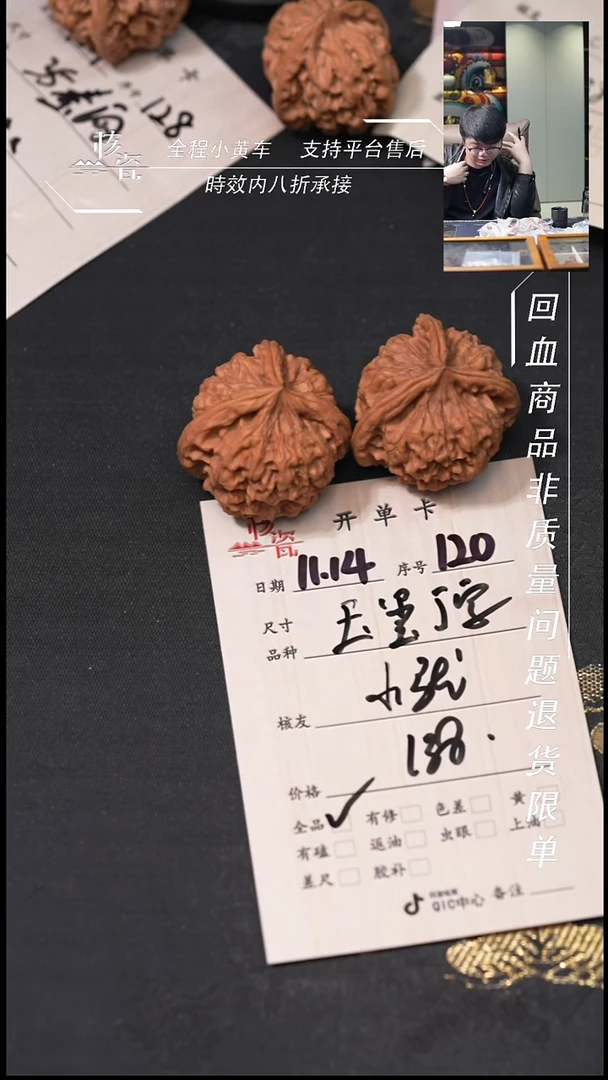 卡
128
核瓷
全程小黄车 支持平台售后
時效内八折承接
回血商品非质量问题退货限单
核瓷
开单卡
日期 11.14 序号 120
尺寸
品种
核友
价格 138.
全品 ✓ 有修 色差 黄
有磕 返油 虫眼 上油
差尺 胶补
QIC中心 备注